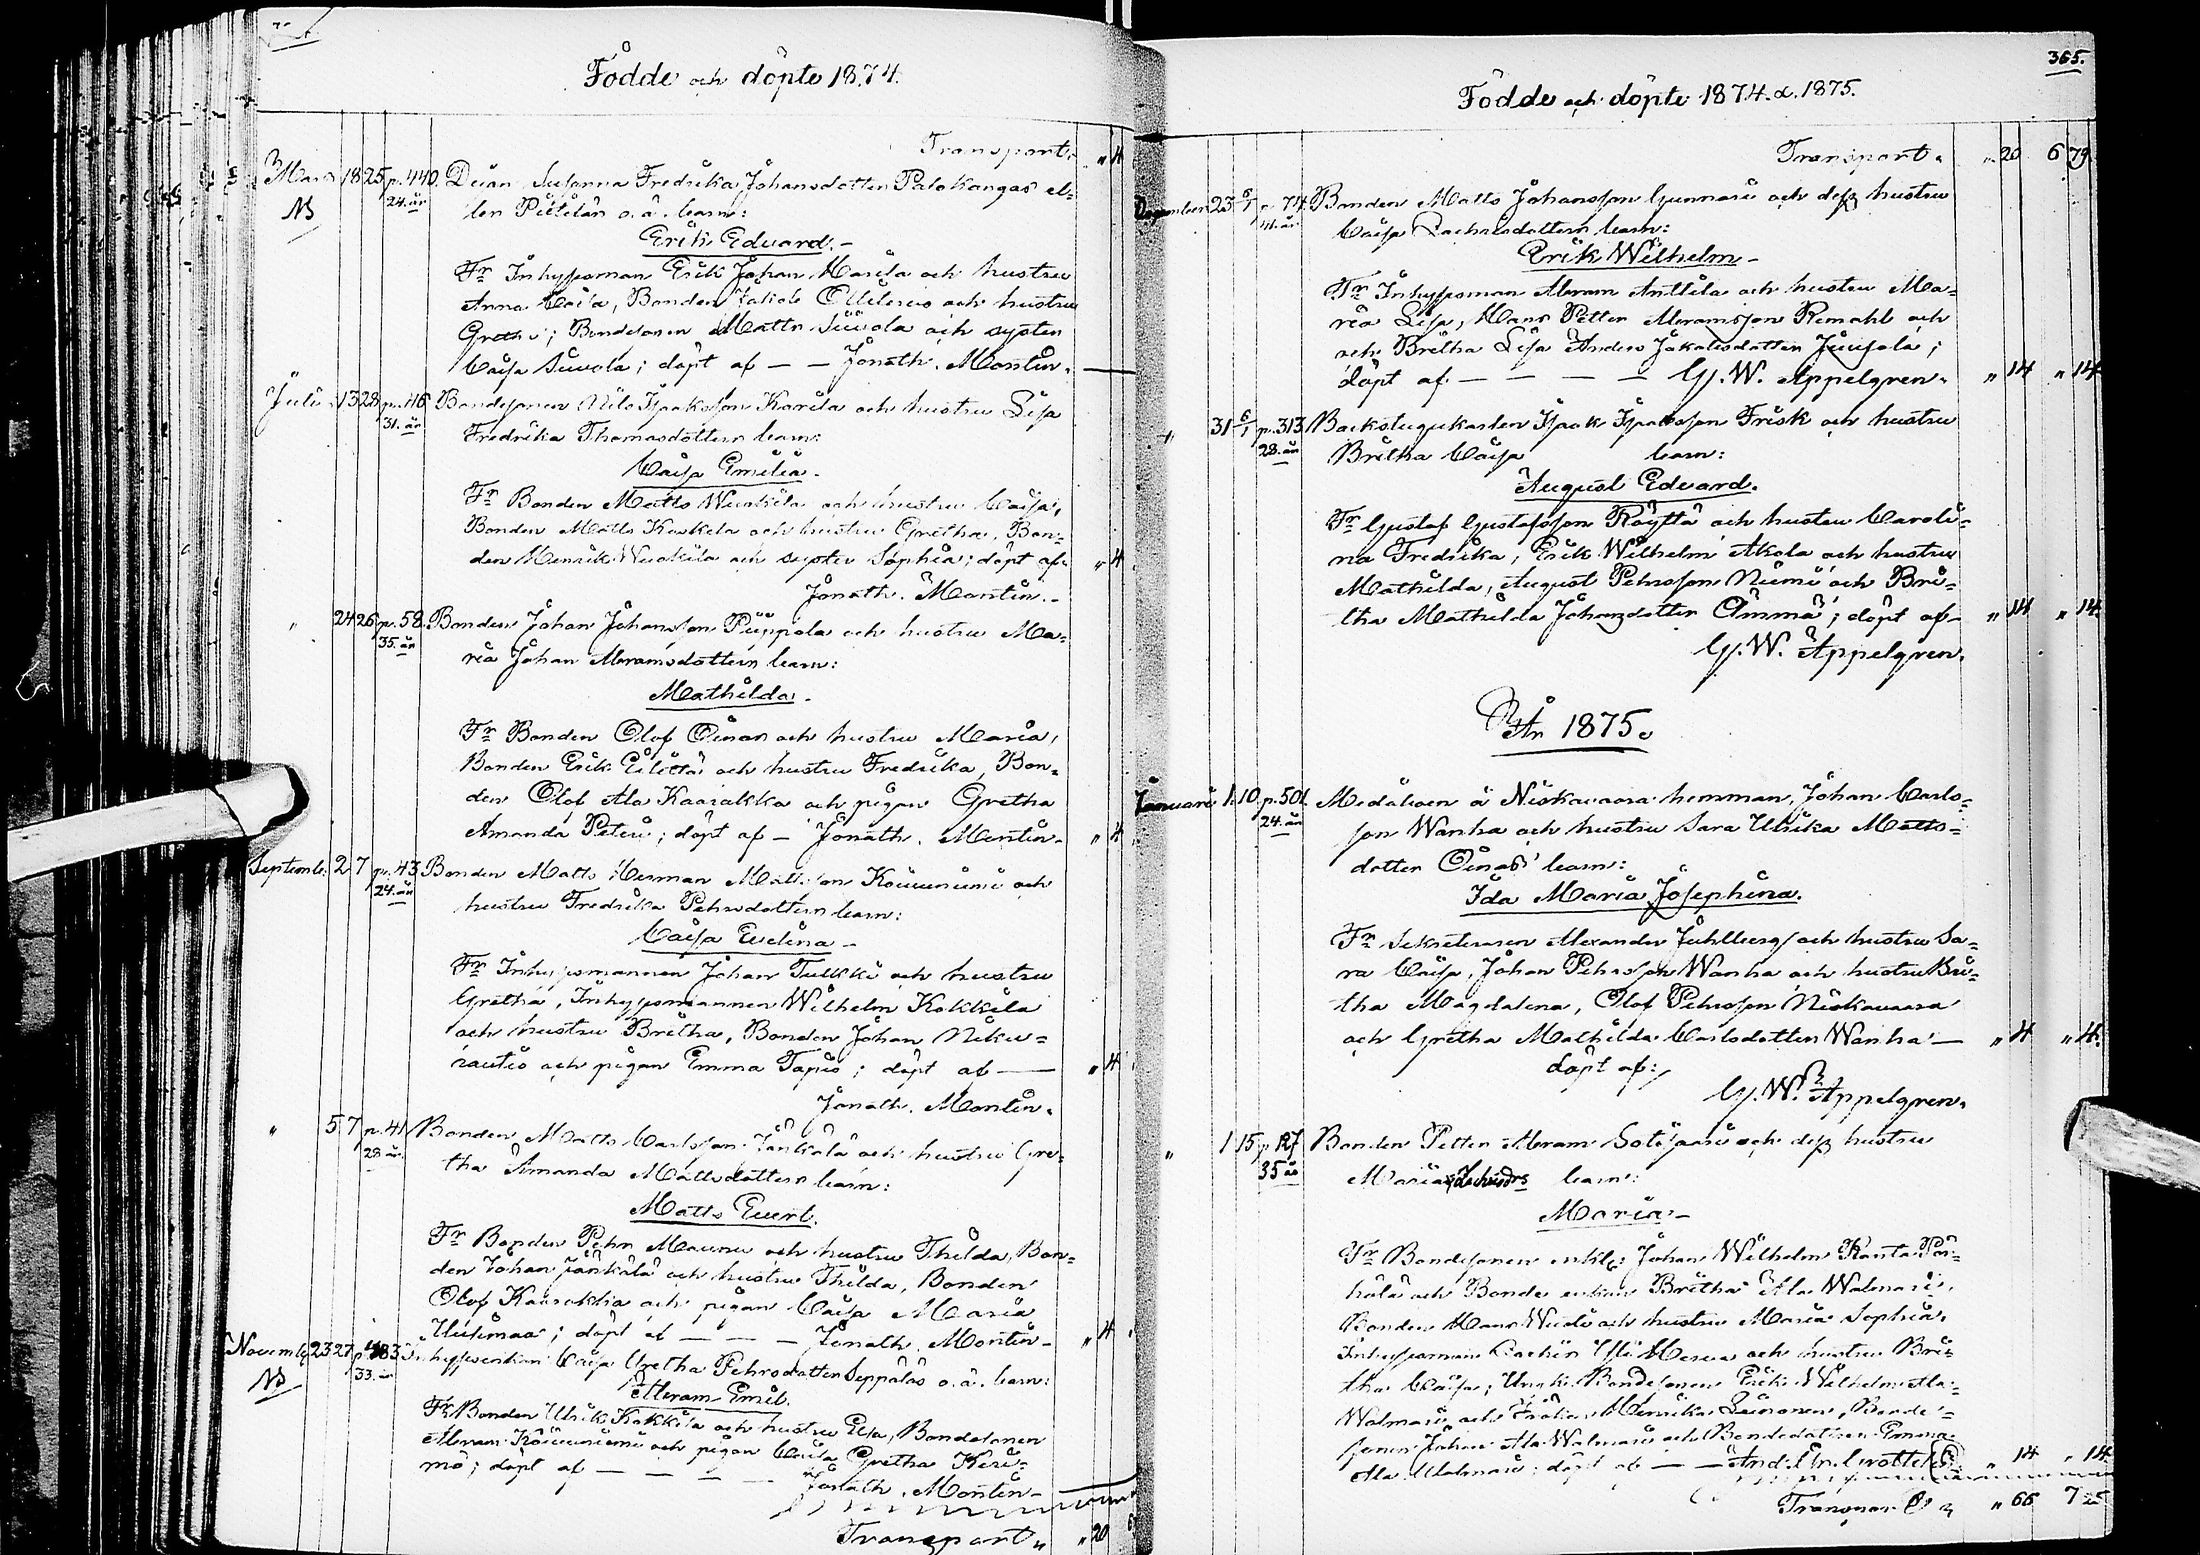 Födde och döpte 1874.
Transport. " 4
Mars 18 25 p. 440. Deian Susanna Fredrika Johansdotter Palokangas el-
NB 24. år ler Pietilän o. ä. barn:
Erik Eduard. -
Fr Inhysesman Erik Johan Marila och hustru
Anna Caisa, Bonden Jakob Ollilervo och hustru
Gretha; Bondesonen Matts Siivola och syster
Caisa Siivola; döpt af — — Jonath. Montin. —
Juli 13 28 p. 116 Bondesonen Nils Isaksson Karila och hustru Lisa
31. år Fredrika Thomasdotters barn:
Caisa Emilia.
Fr Bonden Matts Wuokila och hustru Caisa,
Bonden Matts Kuskela och hustru Gretha, Bon-
den Henrik Wuokila och syster Sophia; döpt af " 4
Jonath. Montin. -
" 24 26 p. 58. Bonden Johan Johansson Piippola och hustru Ma-
35. år ria Johan Abramsdotters barn:
Mathilda.
Fr Bonden Olof Oinas och hustru Maria,
Bonden Erik Eilittä och hustru Fredrika, Bon-
den Olof Ala Kaarakka och pigan Gretha
Amanda Peteri; döpt af — Jonath. Montin - " 4
Septemb. 2 7 p. 43 Bonden Matts Herman Mattsson Koivuniemi och
24. år hustru Fredrika Pehrsdotters barn:
Caisa Evelina -
Fr Inhysesmannen Johan Tulkki och hustru
Gretha, Inhysesmannen Wilhelm Kokkila
och hustru Britha, Bonden Johan Niku-
rautio och pigan Emma Tapio; döpt af — " 4
Jonath. Montin.
" 5 7 p. 41 Bonden Matts Carlsson Jänkälä och hustru Gre-
28 år tha Amanda Mattsdotters barn:
Matts Evert.
Fr Bonden Pehr Maunu och hustru Thilda, Bon-
den Johan Jänkälä och hustru Thilda, Bonden
Olof Kaarakka och pigan Caisa Maria
Uusimaa; döpt af — — — Jonath. Montin - " 4
Novemb. 23 27 p. 483 Inhysesenkan Caisa Gretha Pehrsdotter Seppäläs o. ä. barn:
NB 33. år Abram Emil.
Fr Bonden Ulrik Kokkila och hustru Elsa, Bondesonen
Abram Koivuniemi och pigan Caisa Gretha Keri-
mö; döpt af — — — Jonath. Montin -
Transport " " 20
365.
Födde och döpte 1874. & 1875.
Transport. " 20 6 79
December 23 6/1 p. 74 Bonden Matts Johansson Gunnari och dess hustru
41. år Caisa Zachrisdotters barn:
Erik Wilhelm -
Fr Inhysesman Abram Anttila och hustru Ma-
ria Lisa, Hans Petter Abramsson Remahl och
och Britha Lisa Anders Jakobsdotter Juujola;
döpt af — — — — G. W. Appelgren. " 14 " 14
" 31 6/1 p. 313 Backstugukarlen Isak Isaksson Frisk och hustru
28. år Britha Caisa barn:
August Edvard.
Fr Gustaf Gustafsson Röyttä och hustru Caroli-
na Fredrika, Erik Wilhelm Akola och hustru
Mathilda, August Pehrsson Niemi och Bri-
tha Mathilda Johansdotter Ämmä; döpt af " 14 " 14
G. W. Appelgren.
År 1875.
Januari 1 10 p. 501. Medåboen å Niskavaara hemman, Johan Carls-
24. år son Wanha och hustru Sara Ulrika Matts-
dotter Oinas' barn:
Ida Maria Josephina.
Fr Sekreteraren Alexander Juhlberg och hustru Sa-
ra Caisa, Johan Pehrsson Wanha och hustru Bri-
tha Magdalena, Olof Pehrsson Niskavaara
och Gretha Mathilda Carlsdotter Wanha — " 4 " 4
döpt af:
G. W. Appelgren.
" 1 15 p. 127 Bonden Petter Abram Sotisaari och dess hustru
35 år Maria Zachrisdrs barn:
Maria -
Fr Bondesonen enkl: Johan Wilhelm Ranta Pör-
hälä och Bonde enkan Britha Ala Walmari,
Bonden Hans Wuoli och hustru Maria Sophia,
Inhysesman Zachris Yli Herva och hustru Bri-
tha Caisa; Ungk. Bondesonen Erik Wilhelm Ala-
Walmari och Fröken Henrika Leinonen, Bonde-
sonen Johan Ala Walmari och Bondedottren Emma
Ala Walmari; döpt af — — " 14 " 14
Transport " 66 7